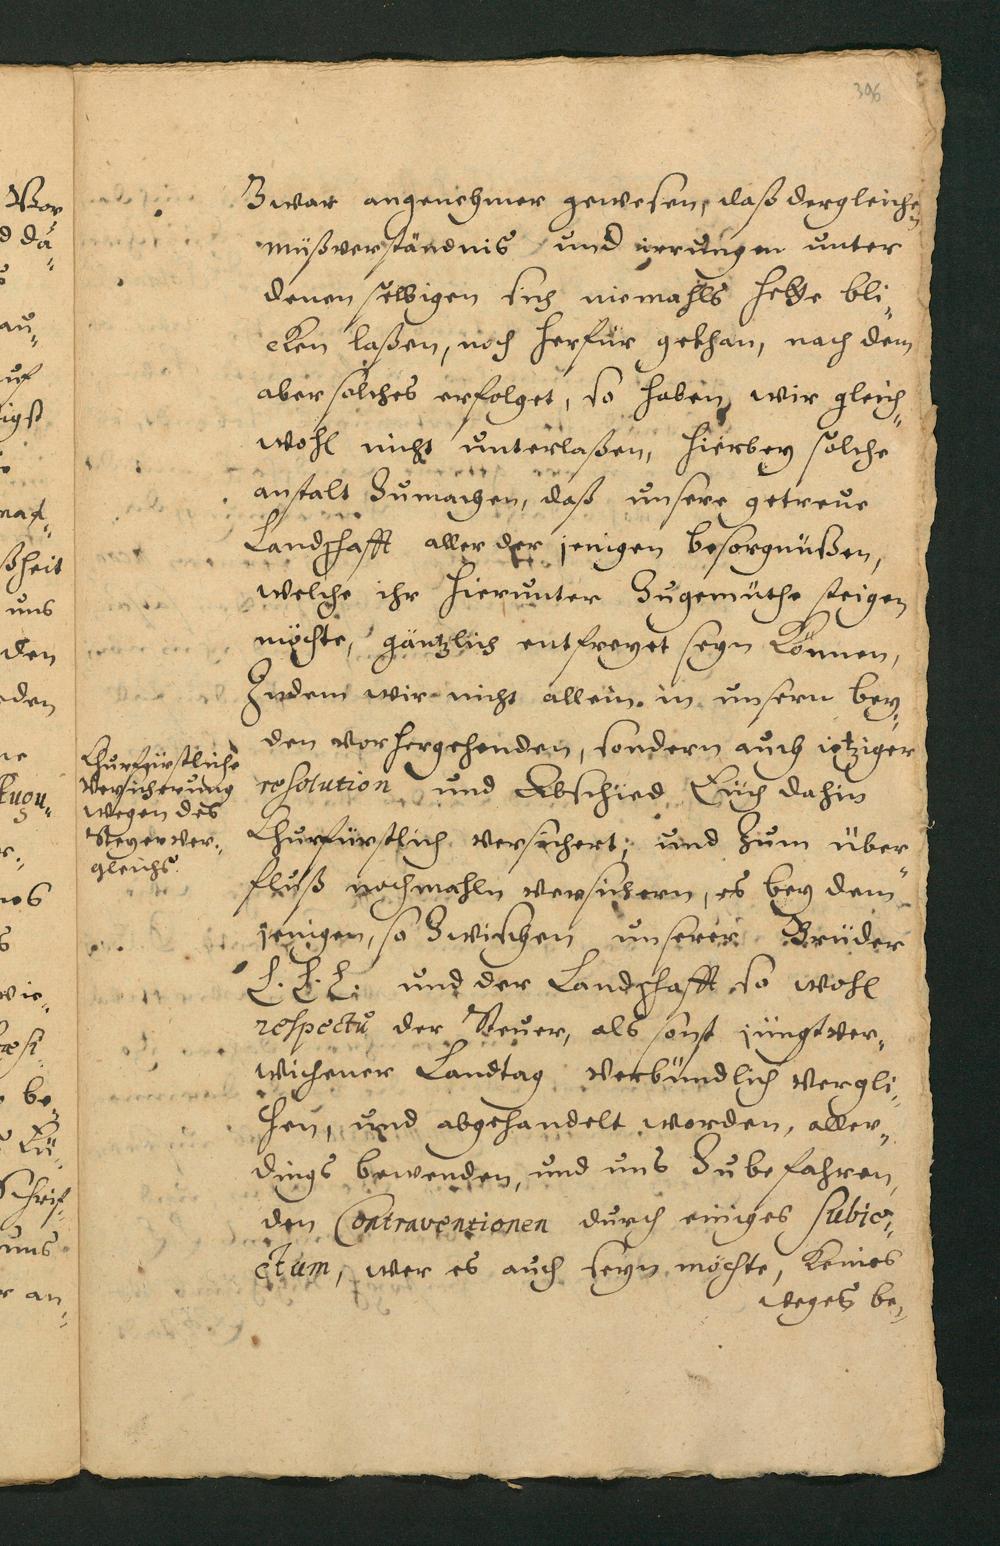 396
Zwar angenehmer gewesen, daß dergleichen
müßverständnis und irrungen unter
denen selbigen sich niemahls hette bli„
cken laßen, noch herfür gethan, nach dem
aber solches erfolget, so haben wir gleich„
wohl nicht unterlaßen, hierbey solche
anstalt Zumachen, daß unsere getreue
Landschafft aller der jenigen besorgnüßen,
welche ihr hierunter Zugemüthe steigen
möchte, gäntzlich entfreyet seyn Können,
Indem wir nicht allein in unsern bey„
den vorhergehenden, sondern auch ietziger
resolution und Abschied Euch dahin
Churfürstlich versichert, und Zum über„
fluß nochmahln versichern, es bey dem„
jenigen, so Zwischen unserer Brüder
L. L. L. und der Landschafft so wohl
respectu der Steuer, als sonst jüngstver„
wichener Landtag verbündlich vergli„
chen, und abgehandelt worden, aller„
dings bewenden, und uns Zu befahren„
den Contraventionen durch einiges subje„
ctum, wer es auch seyn möchte, Keines
weges be„
Churfürstliche
Versicherung
wegen des
Steyerver„
gleichs.
Vor
d da„
au„
uf
igst
mach„
ßheit
uns
den
eden
nes
wie„
be„
Eü„
Schrif„
uns
r an„